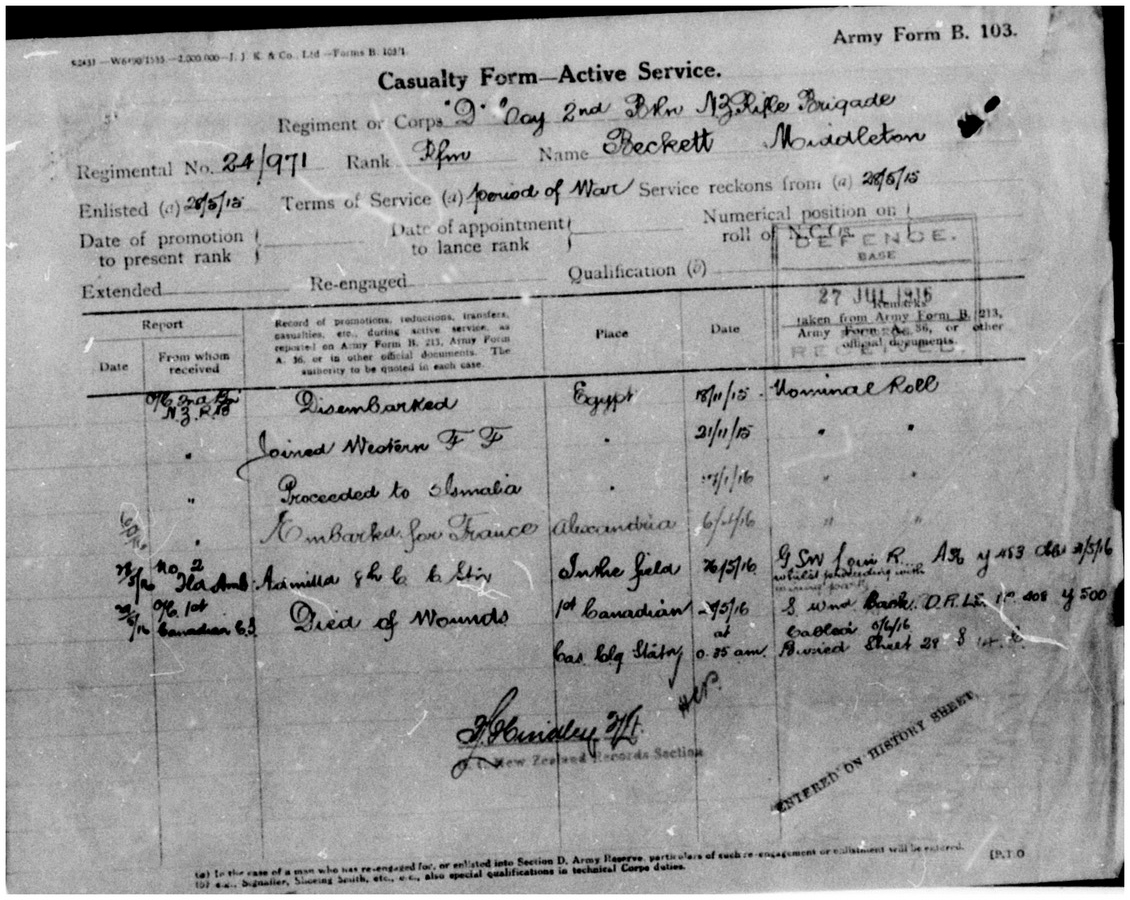 Army Form B. 103.
Casualty Form—Active Service.
Regiment or Corps "D" Coy 2nd Bn NZ Rifle Brigade
Regimental No. 24/971 Rank Rfm Name Beckett Middleton
Enlisted (a) 28/5/15 Terms of Service (a) period of War Service reckons from (a) 28/5/15
Date of promotion to present rank
Date of appointment to lance rank
Numerical position on roll of N.C.Os.
Extended Re-engaged Qualification (b)
DEFENCE.
BASE
27 JUL 1916
RECEIVED.
Report
Date
From whom received
Record of promotions, reductions, transfers, casualties, etc., during active service, as reported on Army Form B. 213, Army Form A. 36, or in other official documents. The authority to be quoted in each case.
Place
Date
Remarks
taken from Army Form B. 213, Army Form A. 36, or other official documents.
O/C 2nd Bn N.Z.R.B Disembarked Egypt 18/11/15 Nominal Roll
" Joined Western F F " 21/11/15 " "
" Proceeded to Ismalia " " "
" Embarked for France Alexandria " "
No. 2 Fld Amb Admitted In the field 26/5/16 G SW
whilst proceeding with
O/C 1st Canadian Died of Wounds 1st Canadian S wnd Back.
Cas Clg Statn at 0.35 am. Cabled 5/6/16
Buried Sheet 28
New Zealand Records Section
ENTERED ON HISTORY SHEET.
(a) In the case of a man who has re-engaged for, or enlisted into Section D. Army Reserve, particulars of such re-engagement or enlistment will be entered.
(b) e.g., Signaller, Shoeing Smith, etc., etc., also special qualifications in technical Corps duties.
[P.T.O